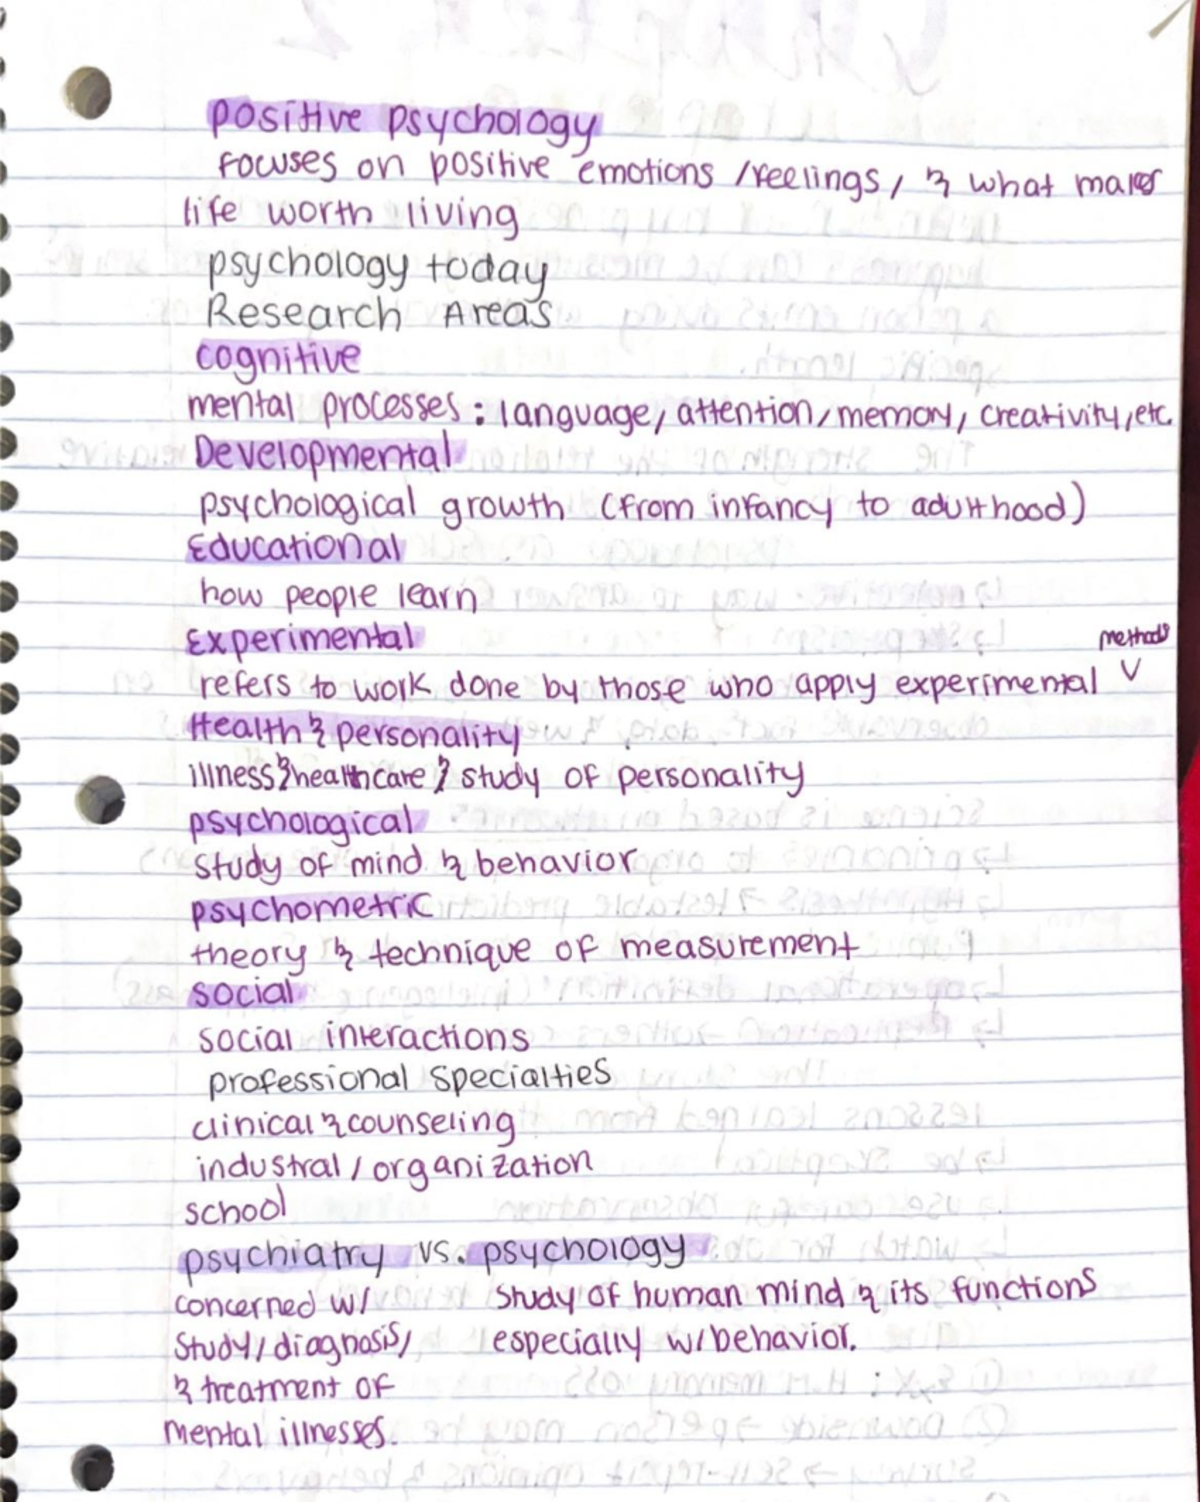 positive psychology
focuses on positive emotions /feelings, & what makes
life worth living
psychology today
Research Areas
cognitive
mental processes: language, attention, memory, creativity, etc.
Developmental
psychological growth (from infancy to adulthood)
Educational
how people learn
Experimental
methods
refers to work done by those who apply experimental ∨
Health & personality
illness & healthcare & study of personality
psychological
study of mind & behavior
psychometric
theory & technique of measurement
social
social interactions
professional specialties
clinical & counseling
industral / organization
school
psychiatry vs. psychology
concerned w/ study of human mind & its functions
study/diagnosis/ especially w/behavior.
& treatment of
mental illnesses.